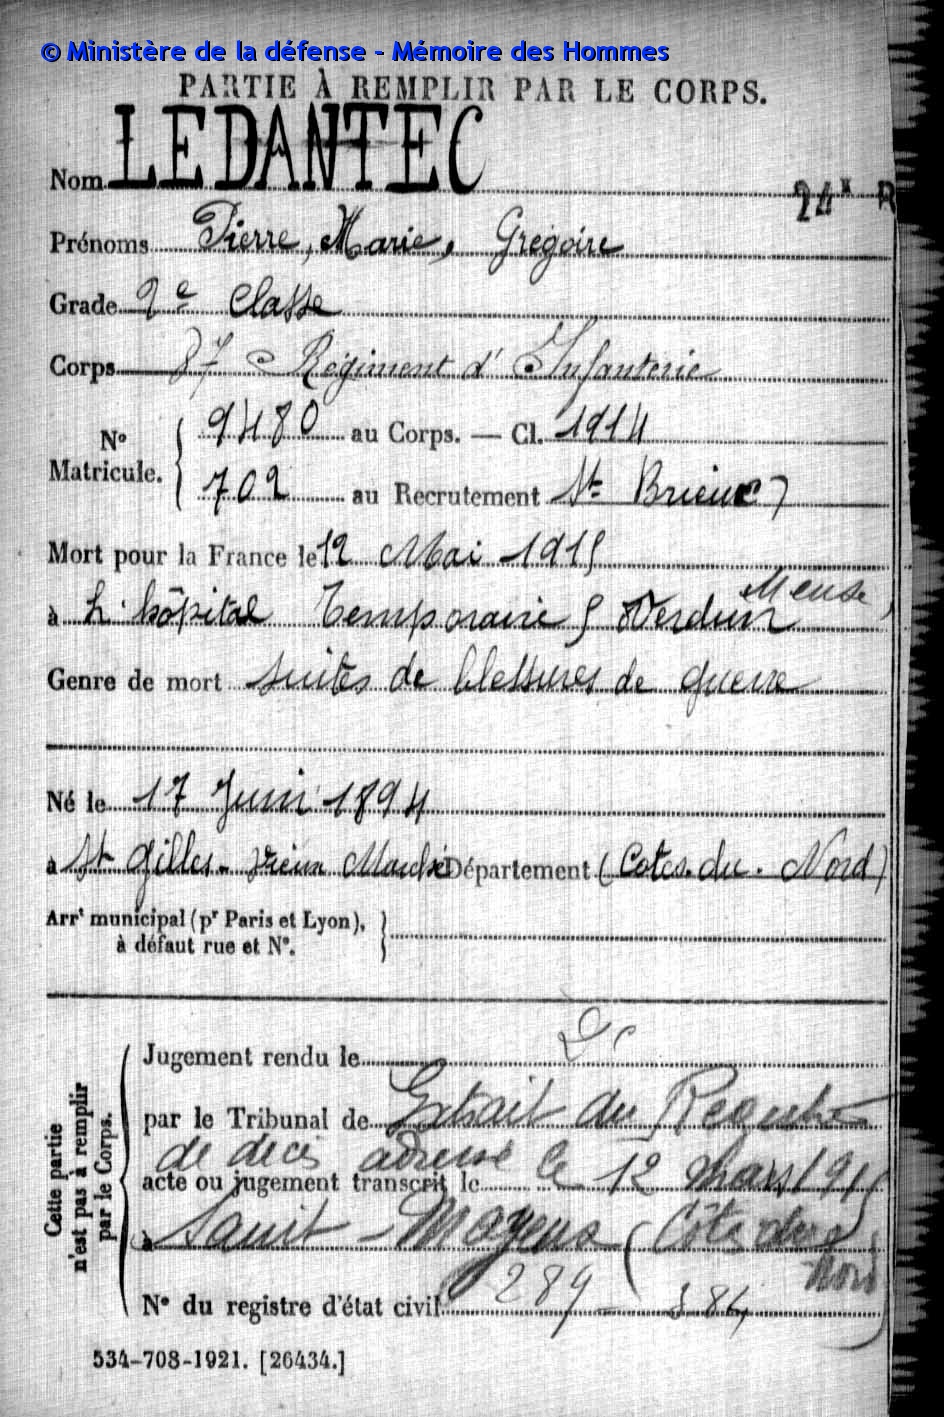 © Ministère de la défense - Mémoire des Hommes
PARTIE À REMPLIR PAR LE CORPS.
Nom LEDANTEC
24
Prénoms Pierre, Marie, Grégoire
Grade 2e Classe
Corps 87e Régiment d'Infanterie
N° Matricule. 9480 au Corps. — Cl. 1914
702 au Recrutement St Brieuc
Mort pour la France le 12 Mai 1915
à L'hôpital Temporaire 5 Verdun Meuse
Genre de mort suites de blessures de guerre
Né le 17 Juin 1894
à St Gilles-Vieux Marché Département (Cotes.du.Nord)
Arrt municipal (pr Paris et Lyon),
à défaut rue et N°.
Cette partie n'est pas à remplir par le Corps.
Jugement rendu le
par le Tribunal de Extrait du Registre
de décès adressé le 12 mars
acte ou jugement transcrit le
à Saint-Mayeux (Côtes du Nord)
N° du registre d'état civil 289
534-708-1921. [26434.]